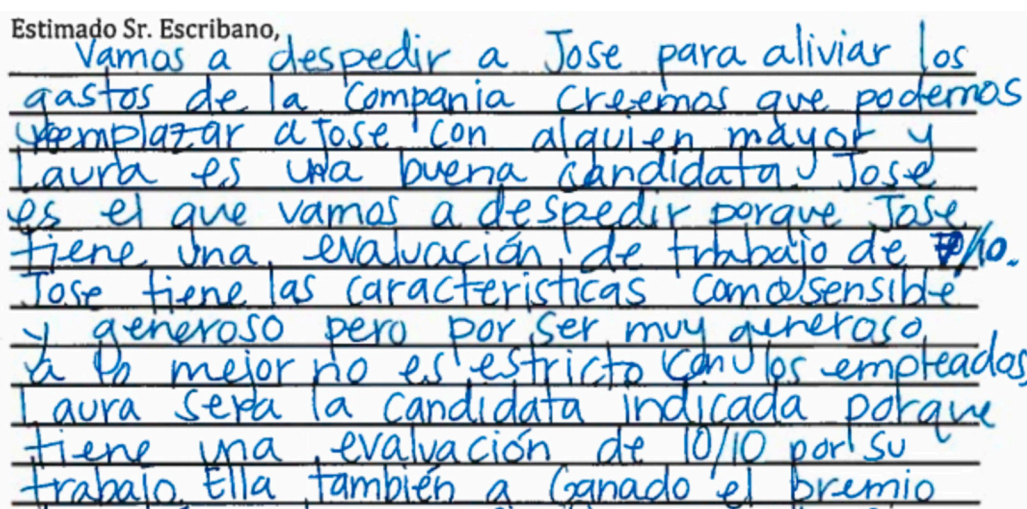 Estimado Sr. Escribano,
Vamos a despedir a Jose para aliviar los
gastos de la compania creemos que podemos
reemplazar a Jose con alguien mayor y
Laura es una buena candidata. Jose
es el que vamos a despedir porque Jose
tiene una evaluación de trabajo de /10.
Jose tiene las caracteristicas como sensible
y generoso pero por ser muy generoso
a lo mejor no es estricto con los empleados
Laura sera la candidata indicada porque
tiene una evaluación de 10/10 por su
trabajo. Ella también a Ganado el premio